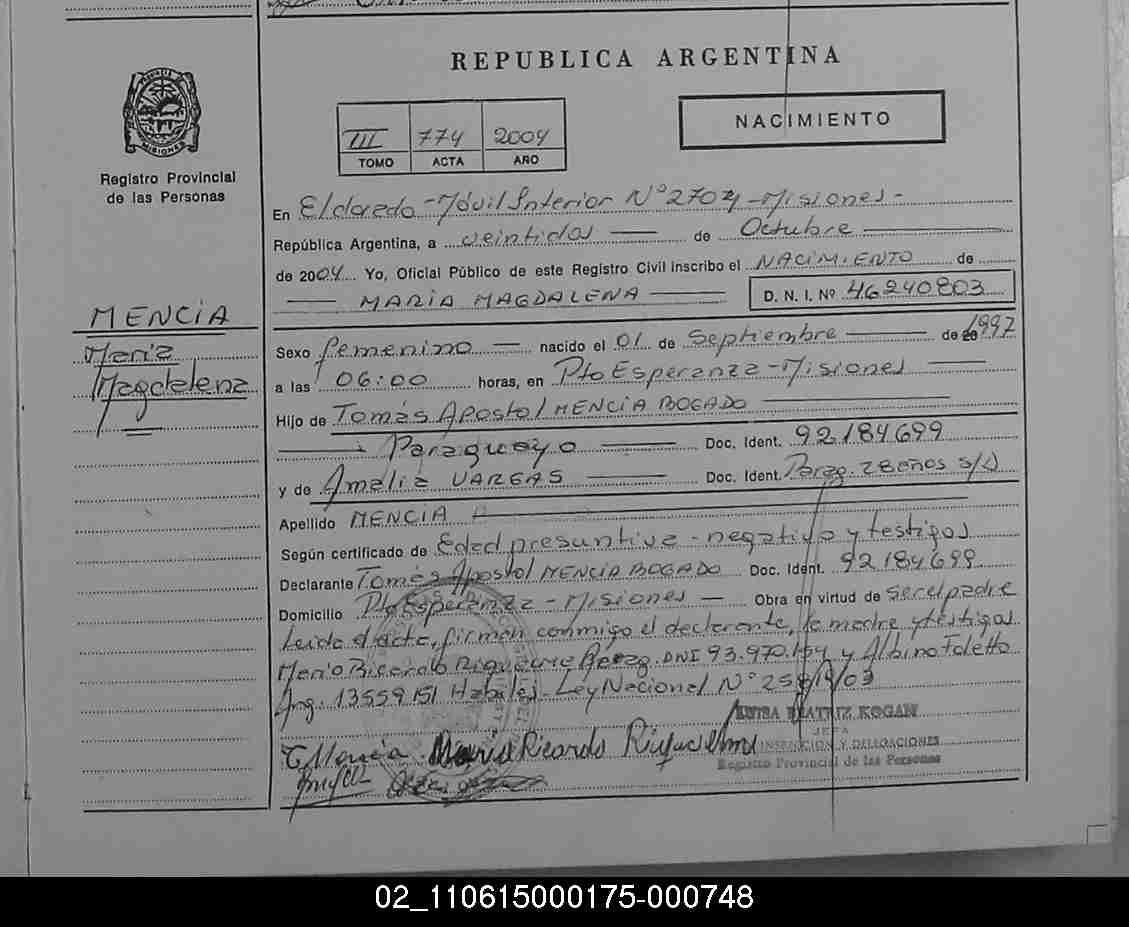 REPUBLICA ARGENTINA
MISIONES
Registro Provincial
de las Personas
III 774 2004
TOMO ACTA AÑO
NACIMIENTO
En Eldorado - Móvil Interior N° 2704 - Misiones -
República Argentina, a veintidos de Octubre
de 2004 Yo, Oficial Público de este Registro Civil inscribo el NACIMIENTO de
MARIA MAGDALENA D. N. I. Nº 46240803
MENCIA
Maria
Magdalena
Sexo femenino nacido el 01 de Septiembre de 20 1997
a las 06:00 horas, en Pto Esperanza - Misiones
Hijo de Tomás Apostol MENCIA BOGADO
Paraguayo Doc. Ident. 92184699
y de Amalia VARGAS Doc. Ident. Parag. 28 años s/d
Apellido MENCIA
Según certificado de Edad presuntiva - negativa y testigos
Declarante Tomás Apostol MENCIA BOGADO Doc. Ident. 92184699
Domicilio Pto Esperanza - Misiones Obra en virtud de ser el padre
Leida el acta, firman conmigo el declarante, la madre y testigos
Mario Ricardo Parag. DNI 93.970.154 y Albino Foletto
Arg. 13559151 Habiles - Ley Nacional N° 25819/03
T Mencia Mario Ricardo
LUISA BEATRIZ KOGAN
JEFA
INSPECCION Y DELEGACIONES
Registro Provincial de las Personas
02_110615000175-000748